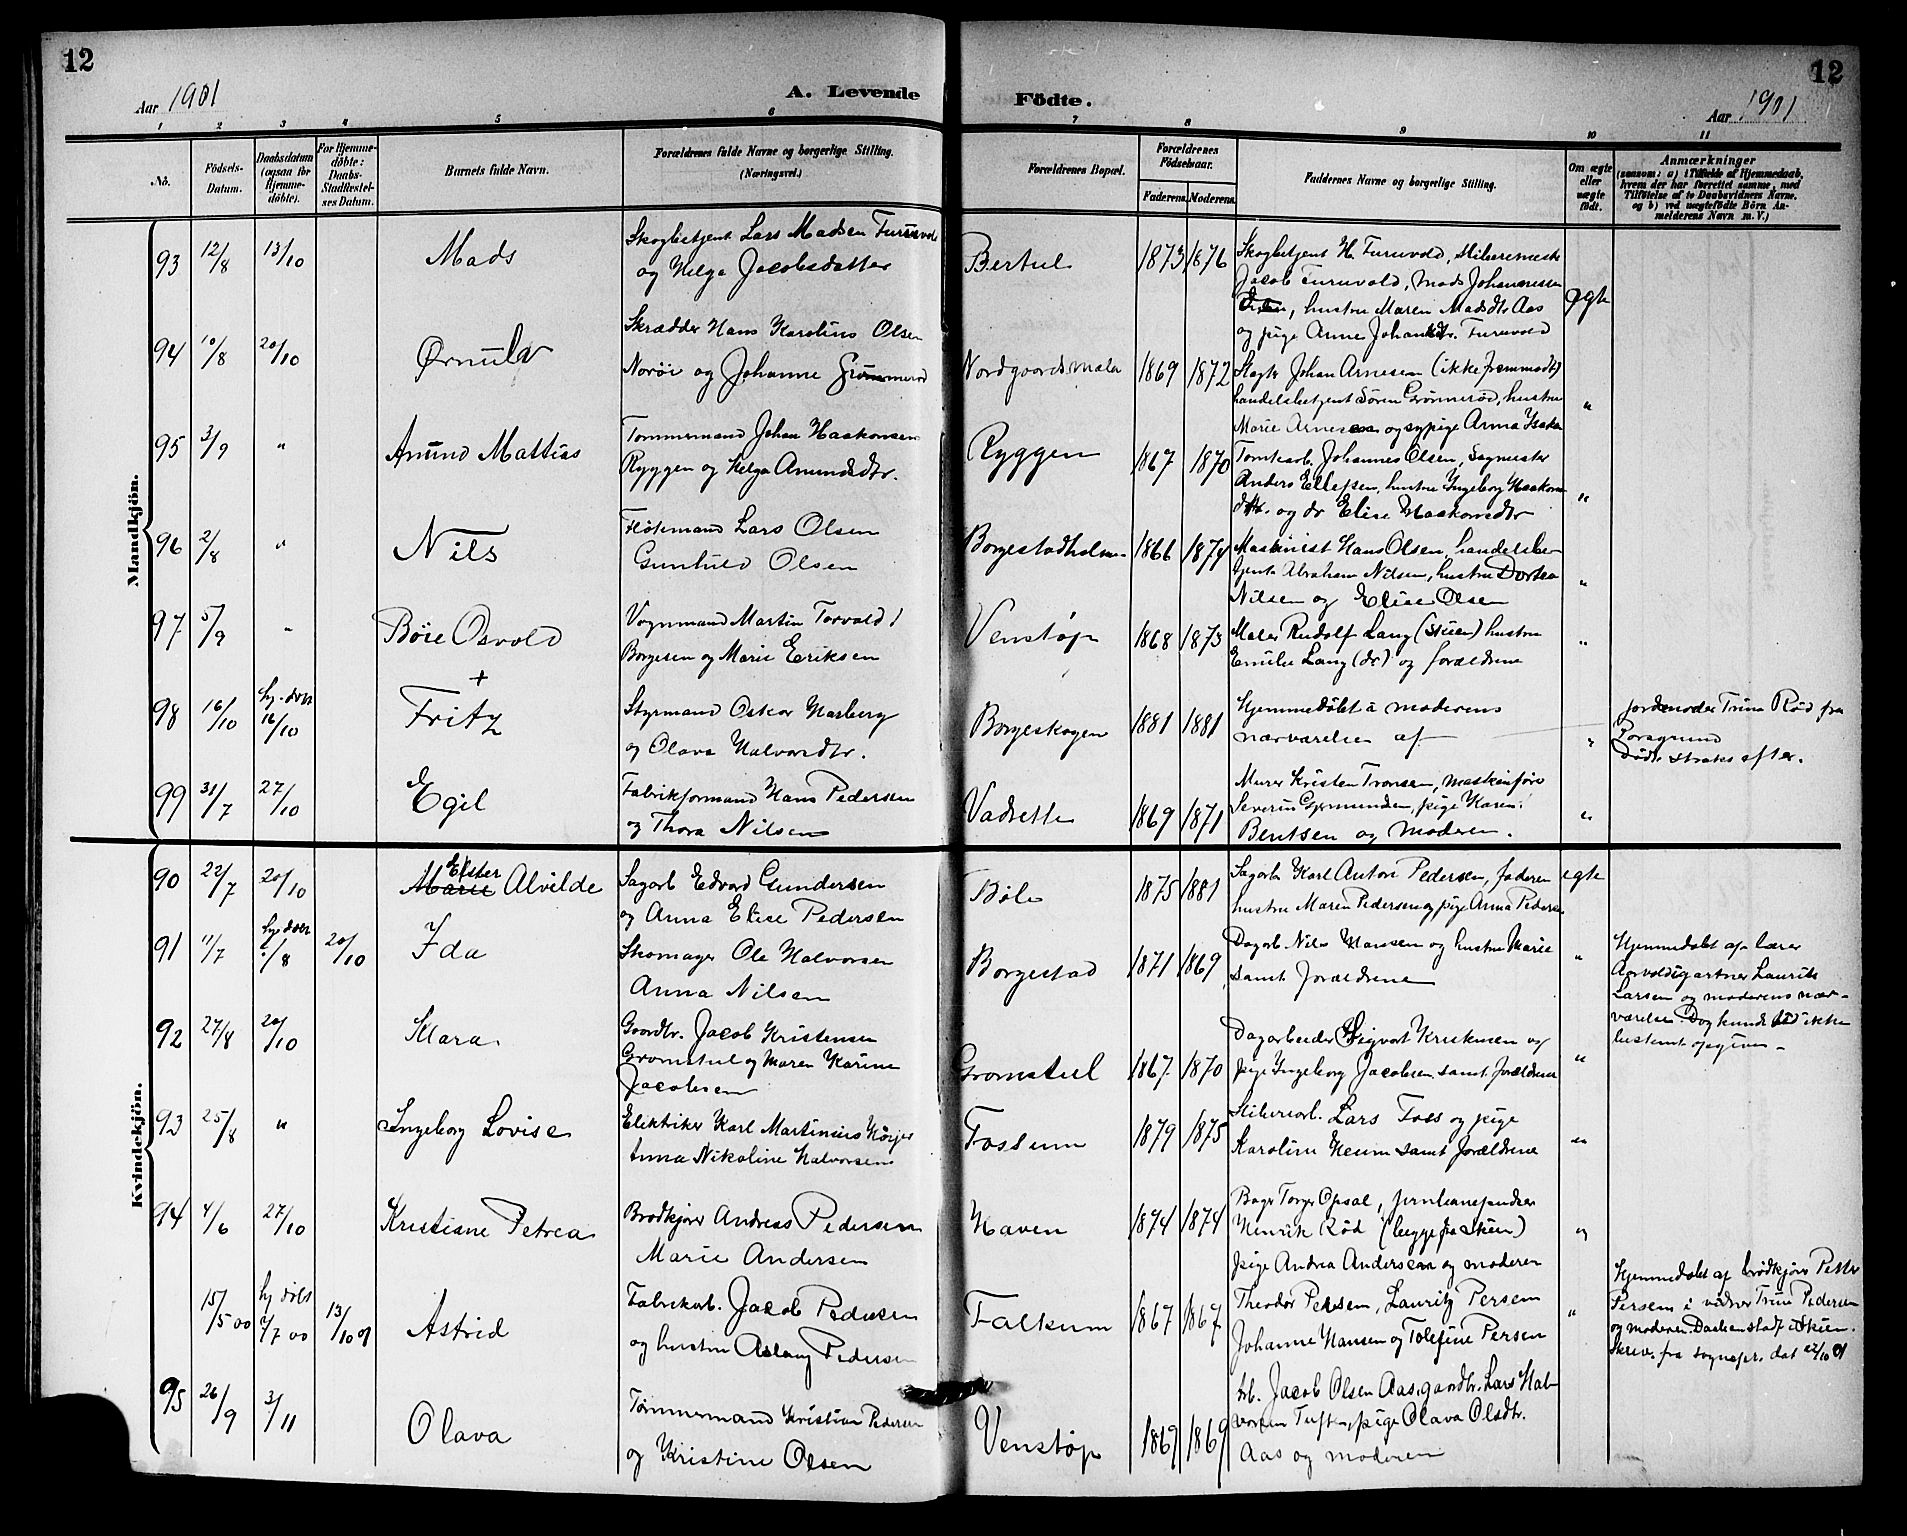 12
12
Aar 1901
A. Levende
Födte.
Aar 1901
1 2 3 4 5 6 7 8 9 10 11
No.
Födsels-Datum.
Daabsdatum (ogsaa for Hjemme-döbte).
For Hjemme-döbte: Daabs-Stadfæstel-ses Datum.
Barnets fulde Navn.
Forældrenes fulde Navne og borgerlige Stilling.
(Næringsvei.)
Forældrenes Bopæl.
Forældrenes Födselsaar.
Faderens. Moderens.
Faddernes Navne og borgerlige Stilling.
Om ægte eller uægte födt.
Anmærkninger
(saasom: a) i Tilfælde af Hjemmedaab,
hvem der har forrettet samme, med
Tilföielse af to Daabsvidners Navne,
og b) ved uægtefödte Börn An-
melderens Navn m. V.)
Mandkjön.
93 12/8 13/10 Mads
Skogbetjent Lars Madsen Furuvold
og Helga Jacobsdatter
Bertul 1873 1876
Skogbetjent H. Furuvold,
Jacob Furuvold, Mads Johannessen
hustru Maren Madsdtr Aas
og pige Anne Furuvold
ægte
94 10/8 20/10 Ørnulv
Skrædder Hans Karolius Olsen
Noröi og Johanne
Nordgaardsmala 1869 1872
Johan Arnesen (ikke fremmødt)
handelsbetjent Sören Grönneröd, hustru
Marie Arnesen og sypige Anna
"
95 3/9 " Anund Mattias
Tømmermand Johan Haakonsen
Ryggen og Helga Anundsdtr.
Ryggen 1867 1870
Tomtearb. Johannes Olsen, Sagmester
Anders Ellefsen, hustru Ingeborg Haakons
dtr. og do Elise Haakonsdtr
"
96 2/8 " Nils
Fløtemand Lars Olsen
Gunhild Olsen
Borgestadholmen 1866 1874
Maskinist Hans Olsen, handelsbe-
tjent Abraham Nilsen, hustru Dortea
Nilsen og Elise Olsen
"
97 5/9 " Böie Osvold
Vognmand Martin Torvald
Borgesen og Marie Eriksen
Venstøp 1868 1873
Maler Rudolf Lang (Skien) hustru
Emilie Lang (do) og forældrene
"
98 16/10 hj. döbt 16/10 + Fritz
Styrmand Oskar Marberg
og Olava Halvorsdtr.
Borgeskogen 1881 1881
Hjemmedöbt i moderens
nærværelse af
"
Jordemoder Trine Röd fra
Porsgrund
Døde straks efter.
99 31/7 27/10 Egil
Fabrikformand Hans Pedersen
og Thora Nilsen
Vadrette 1869 1871
Murer Kristen Tronsen, maskinfører
Severin Gjermundsen, pige Karen
Bentsen og moderen.
"
Kvindekjön.
90 22/7 20/10 Marie Ester Alvilde
Sagarb Edvard Gundersen
og Anna Elise Pedersen
Böle 1875 1881
Sagarb Karl Anton Pedersen, faderen
hustru Maren Pedersen og pige Anna Pedersen
egte
91 11/7 hj. döbt /8 20/10 Ida
Skomager Ole Halvorsen
Anna Nilsen
Borgestad 1871 1869
Dagarb. Nils Hansen og hustru Marie
samt forældrene
"
Hjemmedøbt af lærer
gartner Laurits
Larsen og moderens nær-
værelse. Dag kunde ikke
bestemt opgives -
92 27/8 20/10 Klara
Gaardbr. Jacob Kristensen
Gromstul og Maren Karine
Jacobsen
Gromstul 1867 1870
Dagarbeider Sigvart Kristensen og
pige Ingeborg Jacobsen samt forældrene
"
93 25/8 " Ingeborg Lovise
Elektriker Karl Martinius
Anna Nikoline Halvorsen
Fossum 1879 1875
Sliberiarb. Lars Foss og pige
Karoline Heum samt forældrene
"
94 4/6 27/10 Kristiane Petrea
Brødkjører Andreas Pedersen
Marie Andersen
Haven 1874 1874
Bager Torger Opsal,
Henrik Röd (begge fra Skien)
pige Andrea Andersen og moderen
"
15/5 00 hj. döbt 2/7 00 13/10 01 Astrid
Fabrikarb. Jacob Pedersen
og hustru Aslaug Pedersen
Falkum 1867 1867
Theodor Persen, Lauritz Persen
Johanne Hansen og Tolefine Persen
"
Hjemmedøbt af brødkjører Petter
Persen i vidner Trine Pedersen
og moderen. Daaben stadf i Skien.
Skriv. fra sognepr. dat 22/10 01
95 26/9 3/11 Olava
Tømmermand Kristian Pedersen
og Kristine Olsen
Venstøp 1869 1869
Arb. Jacob Olsen Aas, gaardbr. Lars Hal-
vorsen Tufte, pige Olava Olsdtr.
Aas og moderen